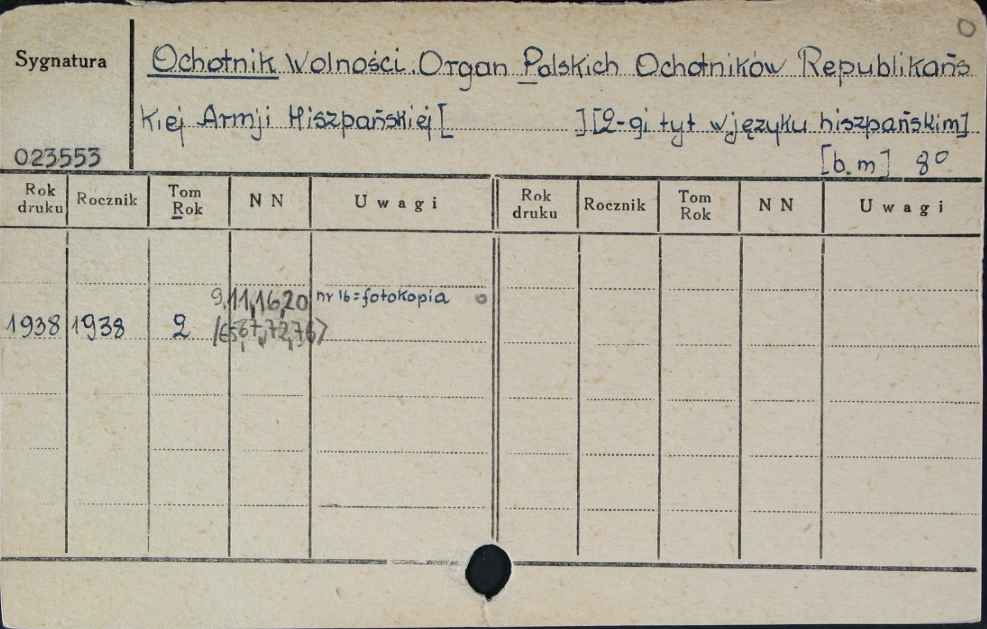 O
Sygnatura
Ochotnik Wolności. Organ Polskich Ochotników Republikańs
kiej Armji Hiszpańskiej [ ] [2-gi tyt w języku hiszpańskim]
023553
[b. m] 8º
Rok druku Rocznik Tom Rok N N Uwagi Rok druku Rocznik Tom Rok N N Uwagi
9, 11, 16, 20 nr 16 = fotokopia
1938 1938 2 /65, 67, 72, 76/